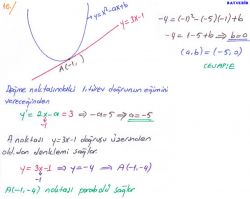 BAYDEHİR
10.)
y=x²-ax+b
y=3x-1
A(-1, )
Değme noktasındaki 1.türev doğrunun eğimini
vereceğinden
y'= 2x-a = 3 ⇒ -a=5 ⇒ a=-5
-1
A noktası y=3x-1 doğrusu üzerinden
old.dan denklemi sağlar
y=3x-1 ⇒ y=-4 ⇒ A(-1,-4)
-1
A(-1,-4) noktası parabolü sağlar
-4=(-1)²-(-5)(-1)+b
-4=1-5+b ⇒ b=0
(a,b)=(-5,0)
CEVAP:E